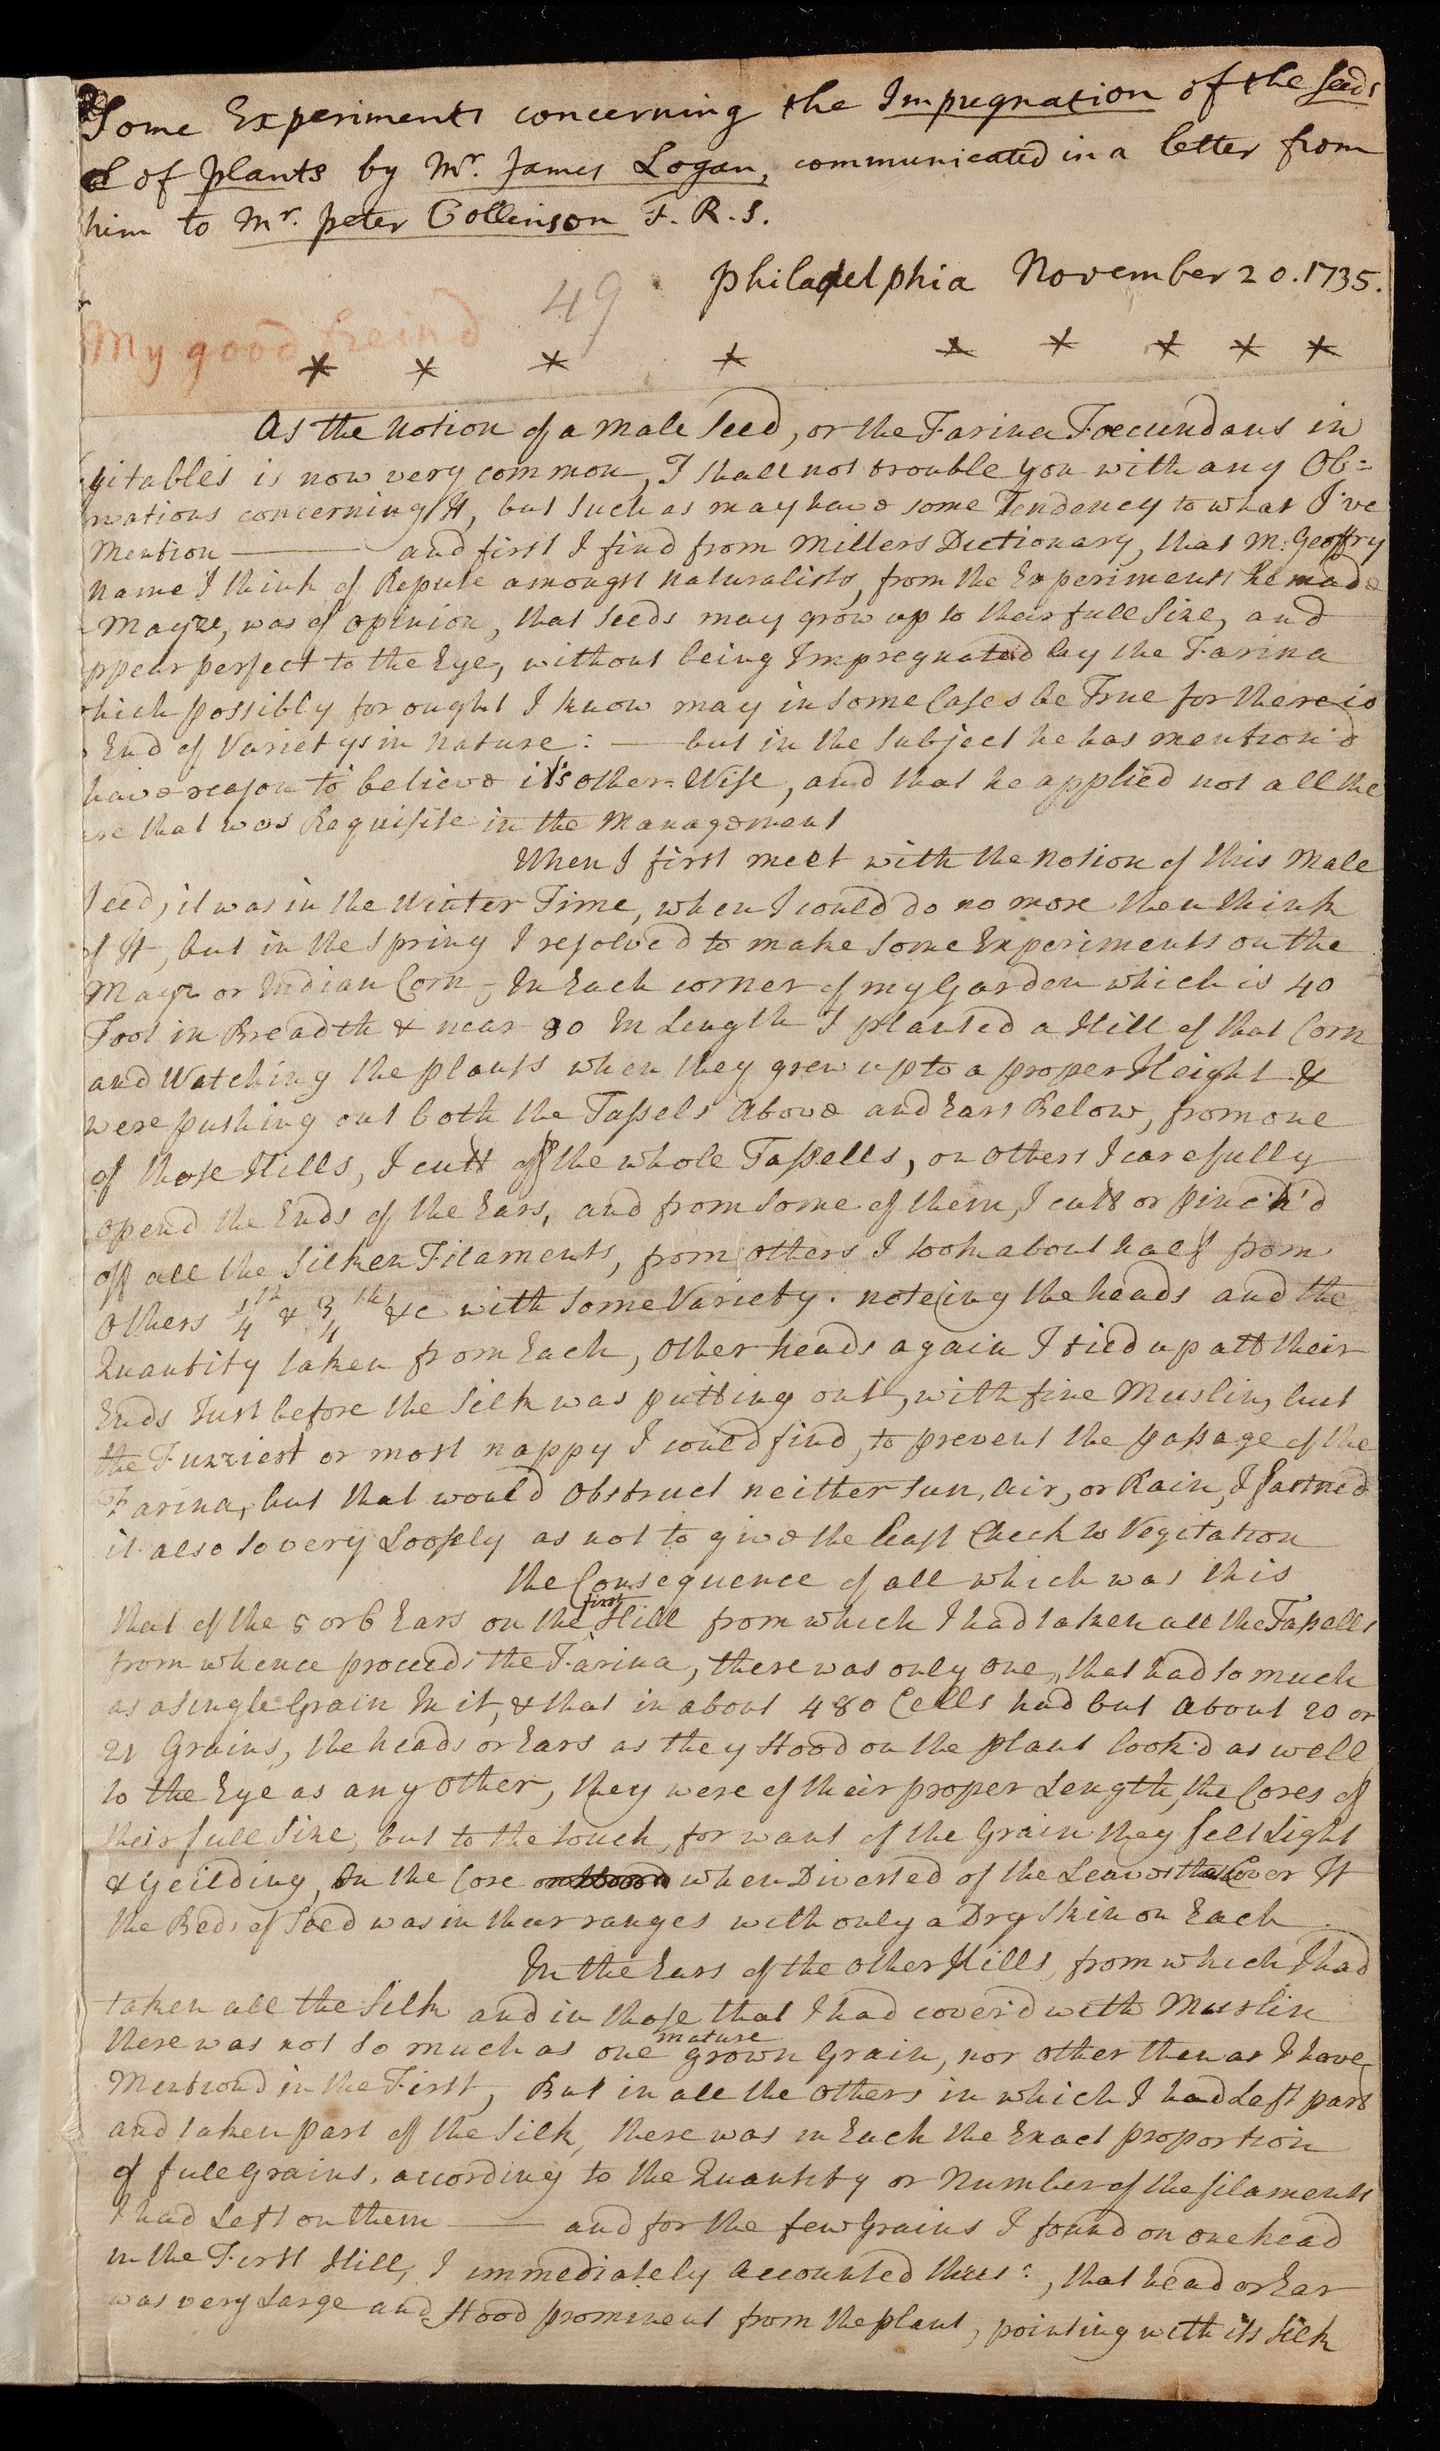 Some Experiments concerning the Impregnation of the Seeds
of plants by Mr. James Logan, communicated in a letter from
him to Mr. Peter Collinson F. R. S.
49 Philadelphia November 20. 1735.
My good freind
* * * * * * * * *
As the Notion of a Male Seed, or the Farina Foecundans in
gitables is now very common, I shall not trouble you with any Ob=
rvations concerning It, but such as may have some Tendency to what I've
Mention ——— and first I find from Millers Dictionary, that M: Geoffry
Name I think of Repute amongst Naturalists, from the Experiments he made
Mayze, was of opinion, that Seeds may grow up to their full Size, and
ppear perfect to the Eye, without being Impregnated by the Farina
hich possibly for ought I know may in some Cases be True for there is
End of Varietys in Nature: — but in the Subject he has mention'd
have reason to believe it's other-Wise, and that he applied not all the
are that was Requisite in the Management
When I first meet with the Notion of this Male
Seed, it was in the Winter Time, when I could do no more then think
of It, but in the Spring I resolved to make some Experiments on the
Mayz or Indian Corn, In Each corner of my Garden which is 40
Foot in Breadth & near 80 In Length I planted a Hill of that Corn
and Watching the plants when they grew up to a proper Height &
were pushing out both the Tassels Above and Ears Below, from one
of those Hills, I cutt off the whole Tassells, on others I carefully
opend the Ends of the Ears, and from some of them, I cutt or pinch'd
off all the Silken Filaments, from others I took about half from
Others 1/4th & 3/4ths &c with some Variety. noteing the heads and the
Quantity taken from Each, Other heads again I tied up att their
Ends Just before the Silk was putting out, with fine Muslin, but
the Fuzziest or most nappy I could find, to prevent the passage of the
Farina, but that would Obstruct neither Sun, Air, or Rain, I fastned
it also so very Loosely as not to give the least Check to Vegitation
the Consequence of all which was this
that of the 5 or 6 Ears on the first Hill from which I had taken all the Tassells
from whence proceeds the Farina, there was only one, that had so much
as a single Grain In it, & that in about 480 Cells had but about 20 or
21 Grains, the heads or Ears as they Stood on the plant look'd as well
to the Eye as any Other, they were of their proper Length, the Cores of
their full Size, but to the touch, for want of the Grain they felt Light
& Yeilding, On the Core when Divested of the Leaves that Cover It
the Beds of Seed was in their ranges with only a Dry Skin on Each
In the Ears of the Other Hills, from which I had
taken all the Silk and in those that I had cover'd with Muslin
there was not so much as one mature grown Grain, nor other then as I have
Mentiond in the First, But in all the Others in which I had Left part
and taken part of the Silk, there was in Each the Exact proportion
of full Grains, according to the Quantity or Number of the filaments
I had Left on them ——— and for the few Grains I found on one head
in the First Hill, I immediately Accounted thus:, that head or Ear
was very Large and Stood prominent from the plant, pointing with its Silk